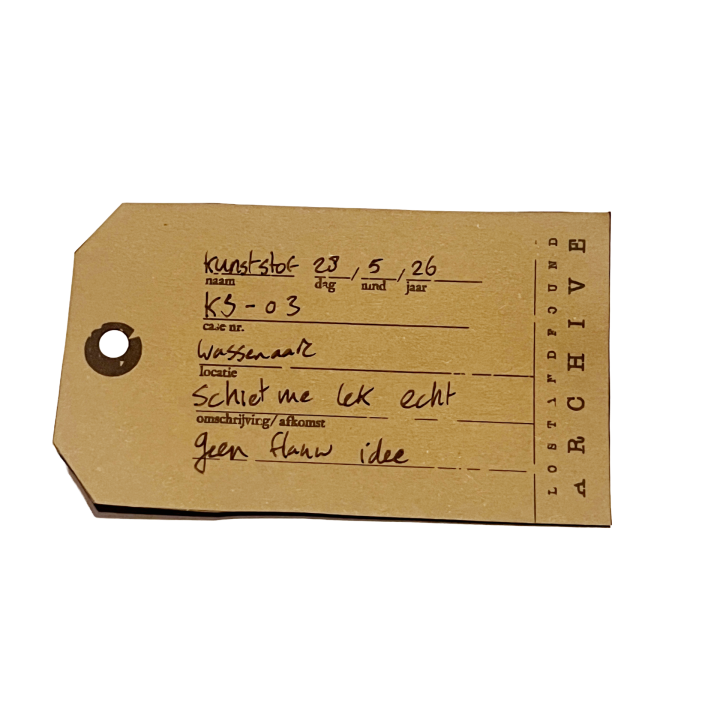 kunststof 23 / 5 / 26
naam dag mnd jaar
KS-03
case nr.
Wassenaar
locatie
Schiet me lek echt
omschrijving/afkomst
geen flauw idee
LOSTANDFOUND
ARCHIVE